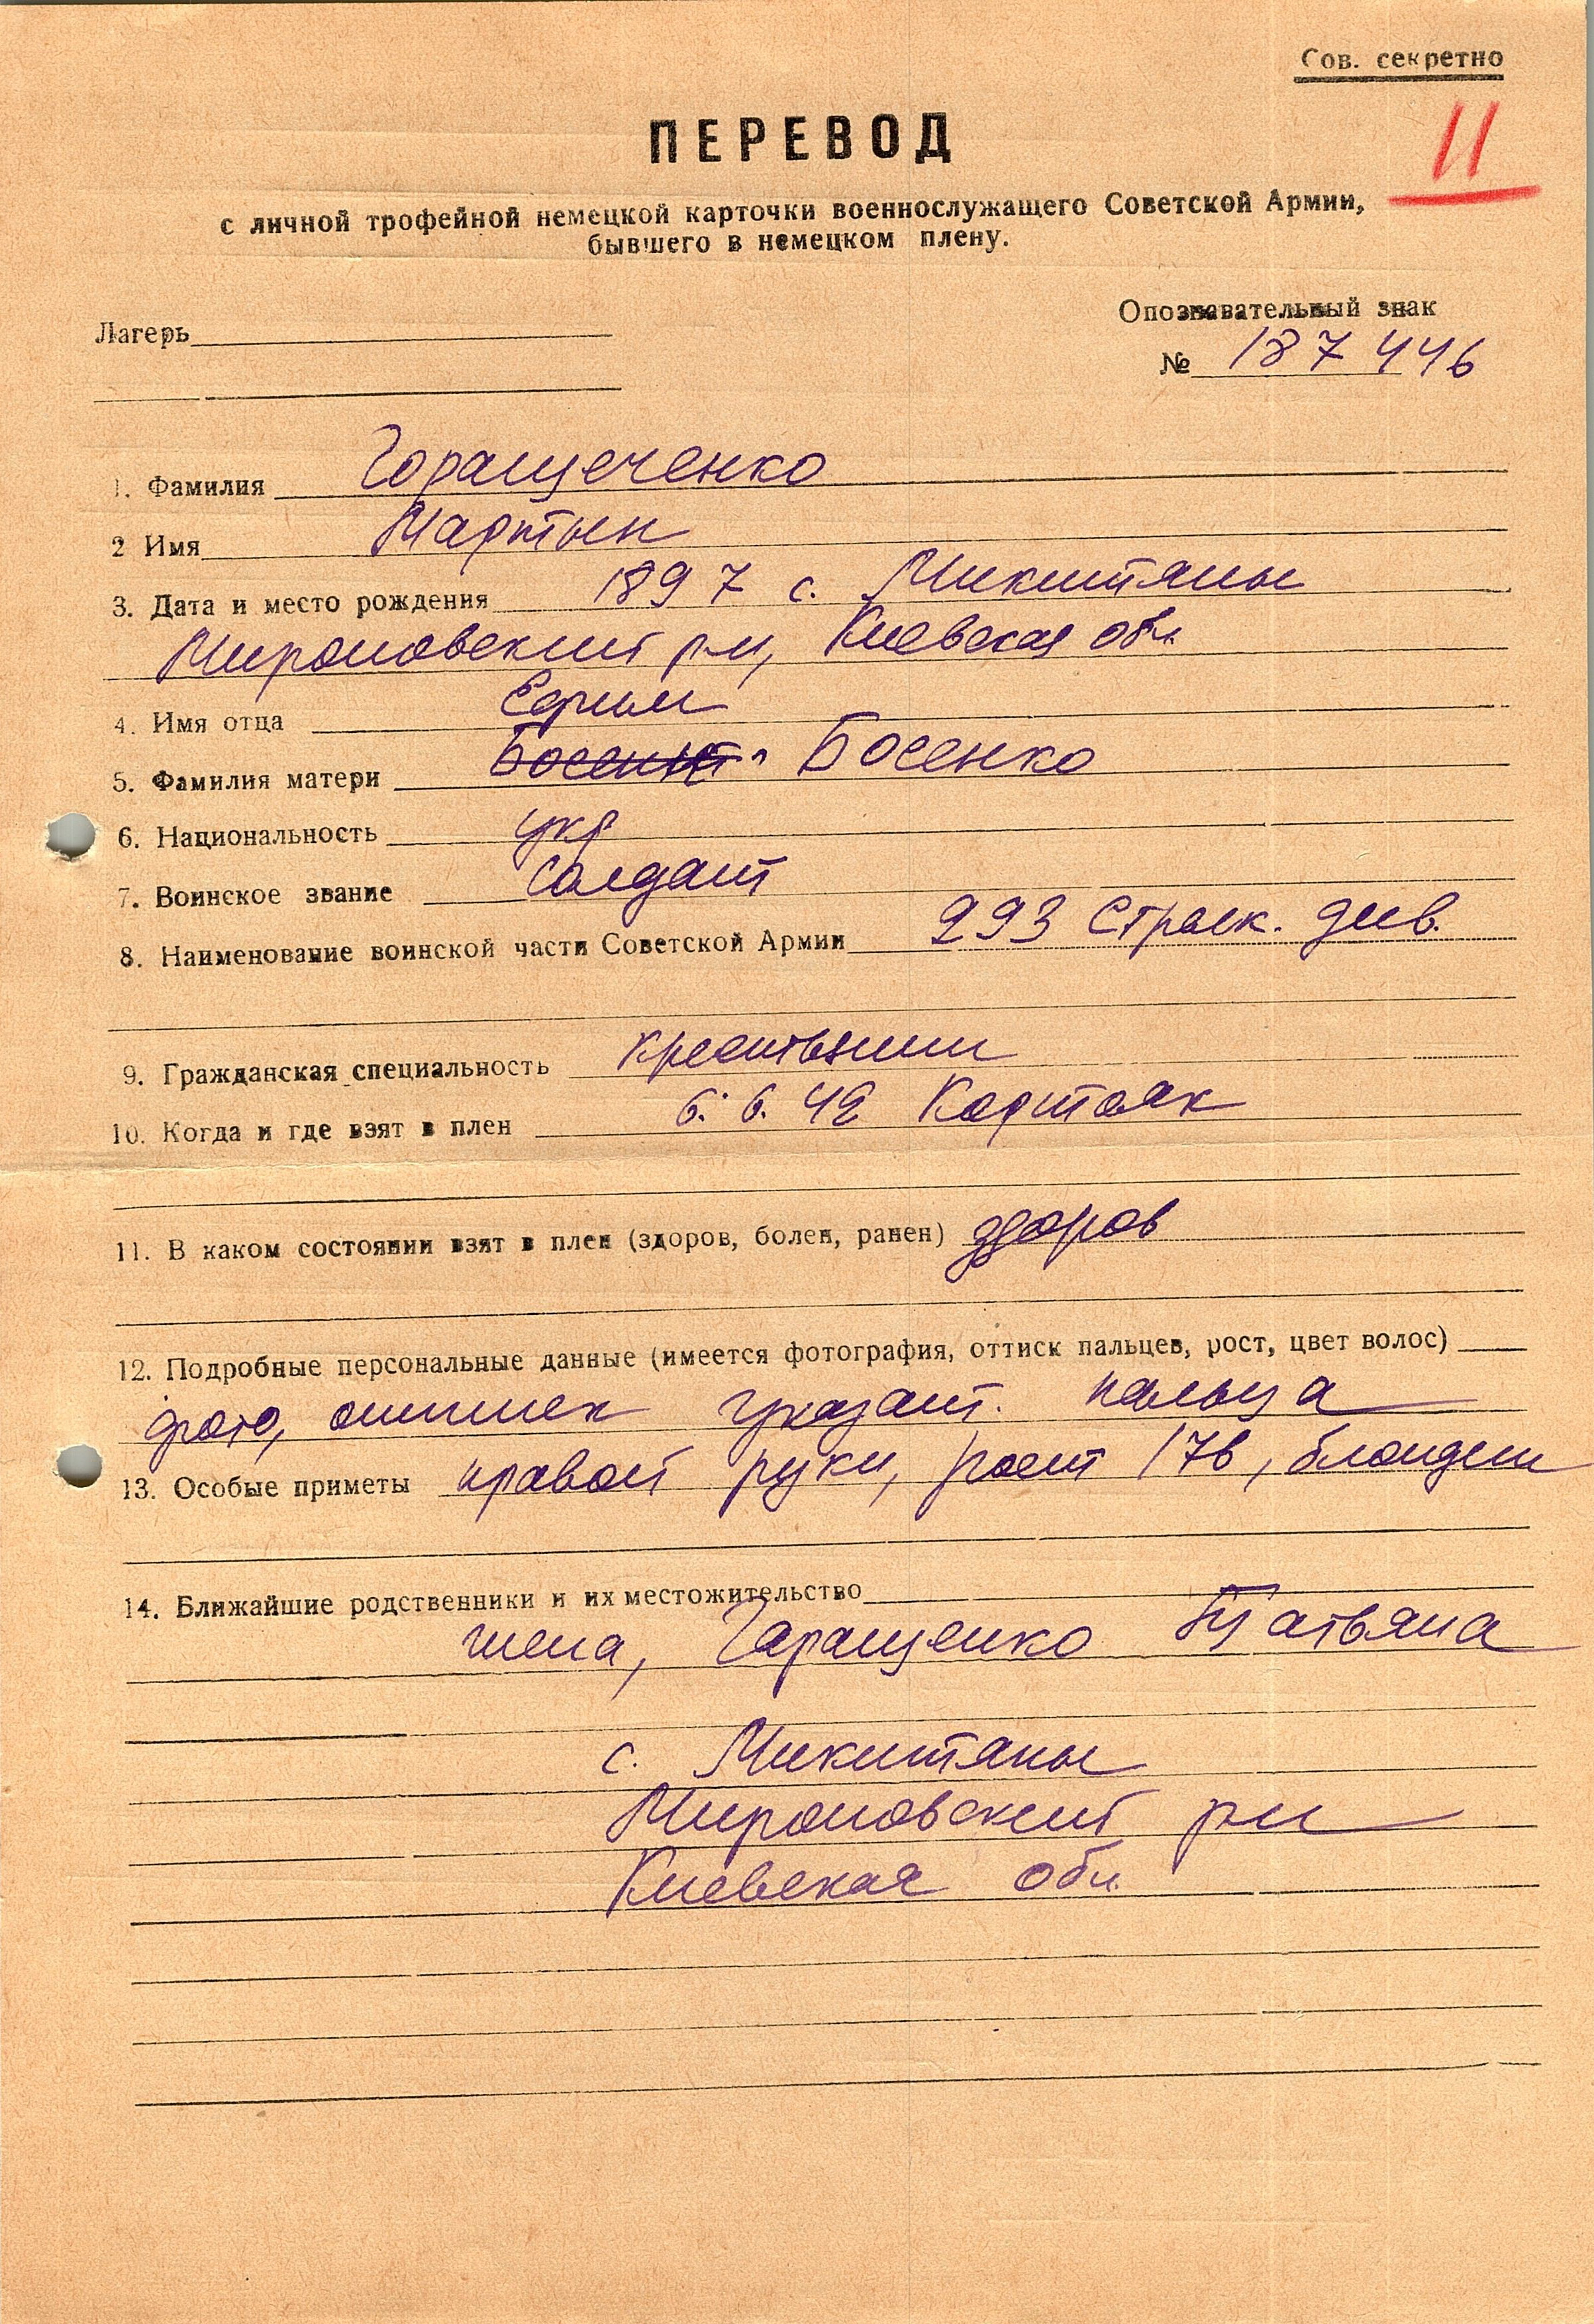 Сов. секретно
11
ПЕРЕВОД
с личной трофейной немецкой карточки военнослужащего Советской Армии,
бывшего в немецком плену.
Опознавательный знак
Лагерь
№ 187446
1. Фамилия Горащеченко
2 Имя Мартын
3. Дата и место рождения 1897 с. Микитяны
Мироновский р-н, Киевская обл.
4. Имя отца Ефим
5. Фамилия матери Босенко
6. Национальность укр
7. Воинское звание Солдат
8. Наименование воинской части Советской Армии 293 Стрелк. див.
9. Гражданская специальность крестьянин
10. Когда и где взят в плен 6.6.42 Картояк
11. В каком состоянии взят в плен (здоров, болен, ранен) здоров
12. Подробные персональные данные (имеется фотография, оттиск пальцев, рост, цвет волос)
фото, оттиск указат. пальца
13. Особые приметы правой руки, рост 176, блондин
14. Ближайшие родственники и их местожительство
жена, Гаращенко Татьяна
с. Микитяны
Мироновский р-н
Киевская обл.